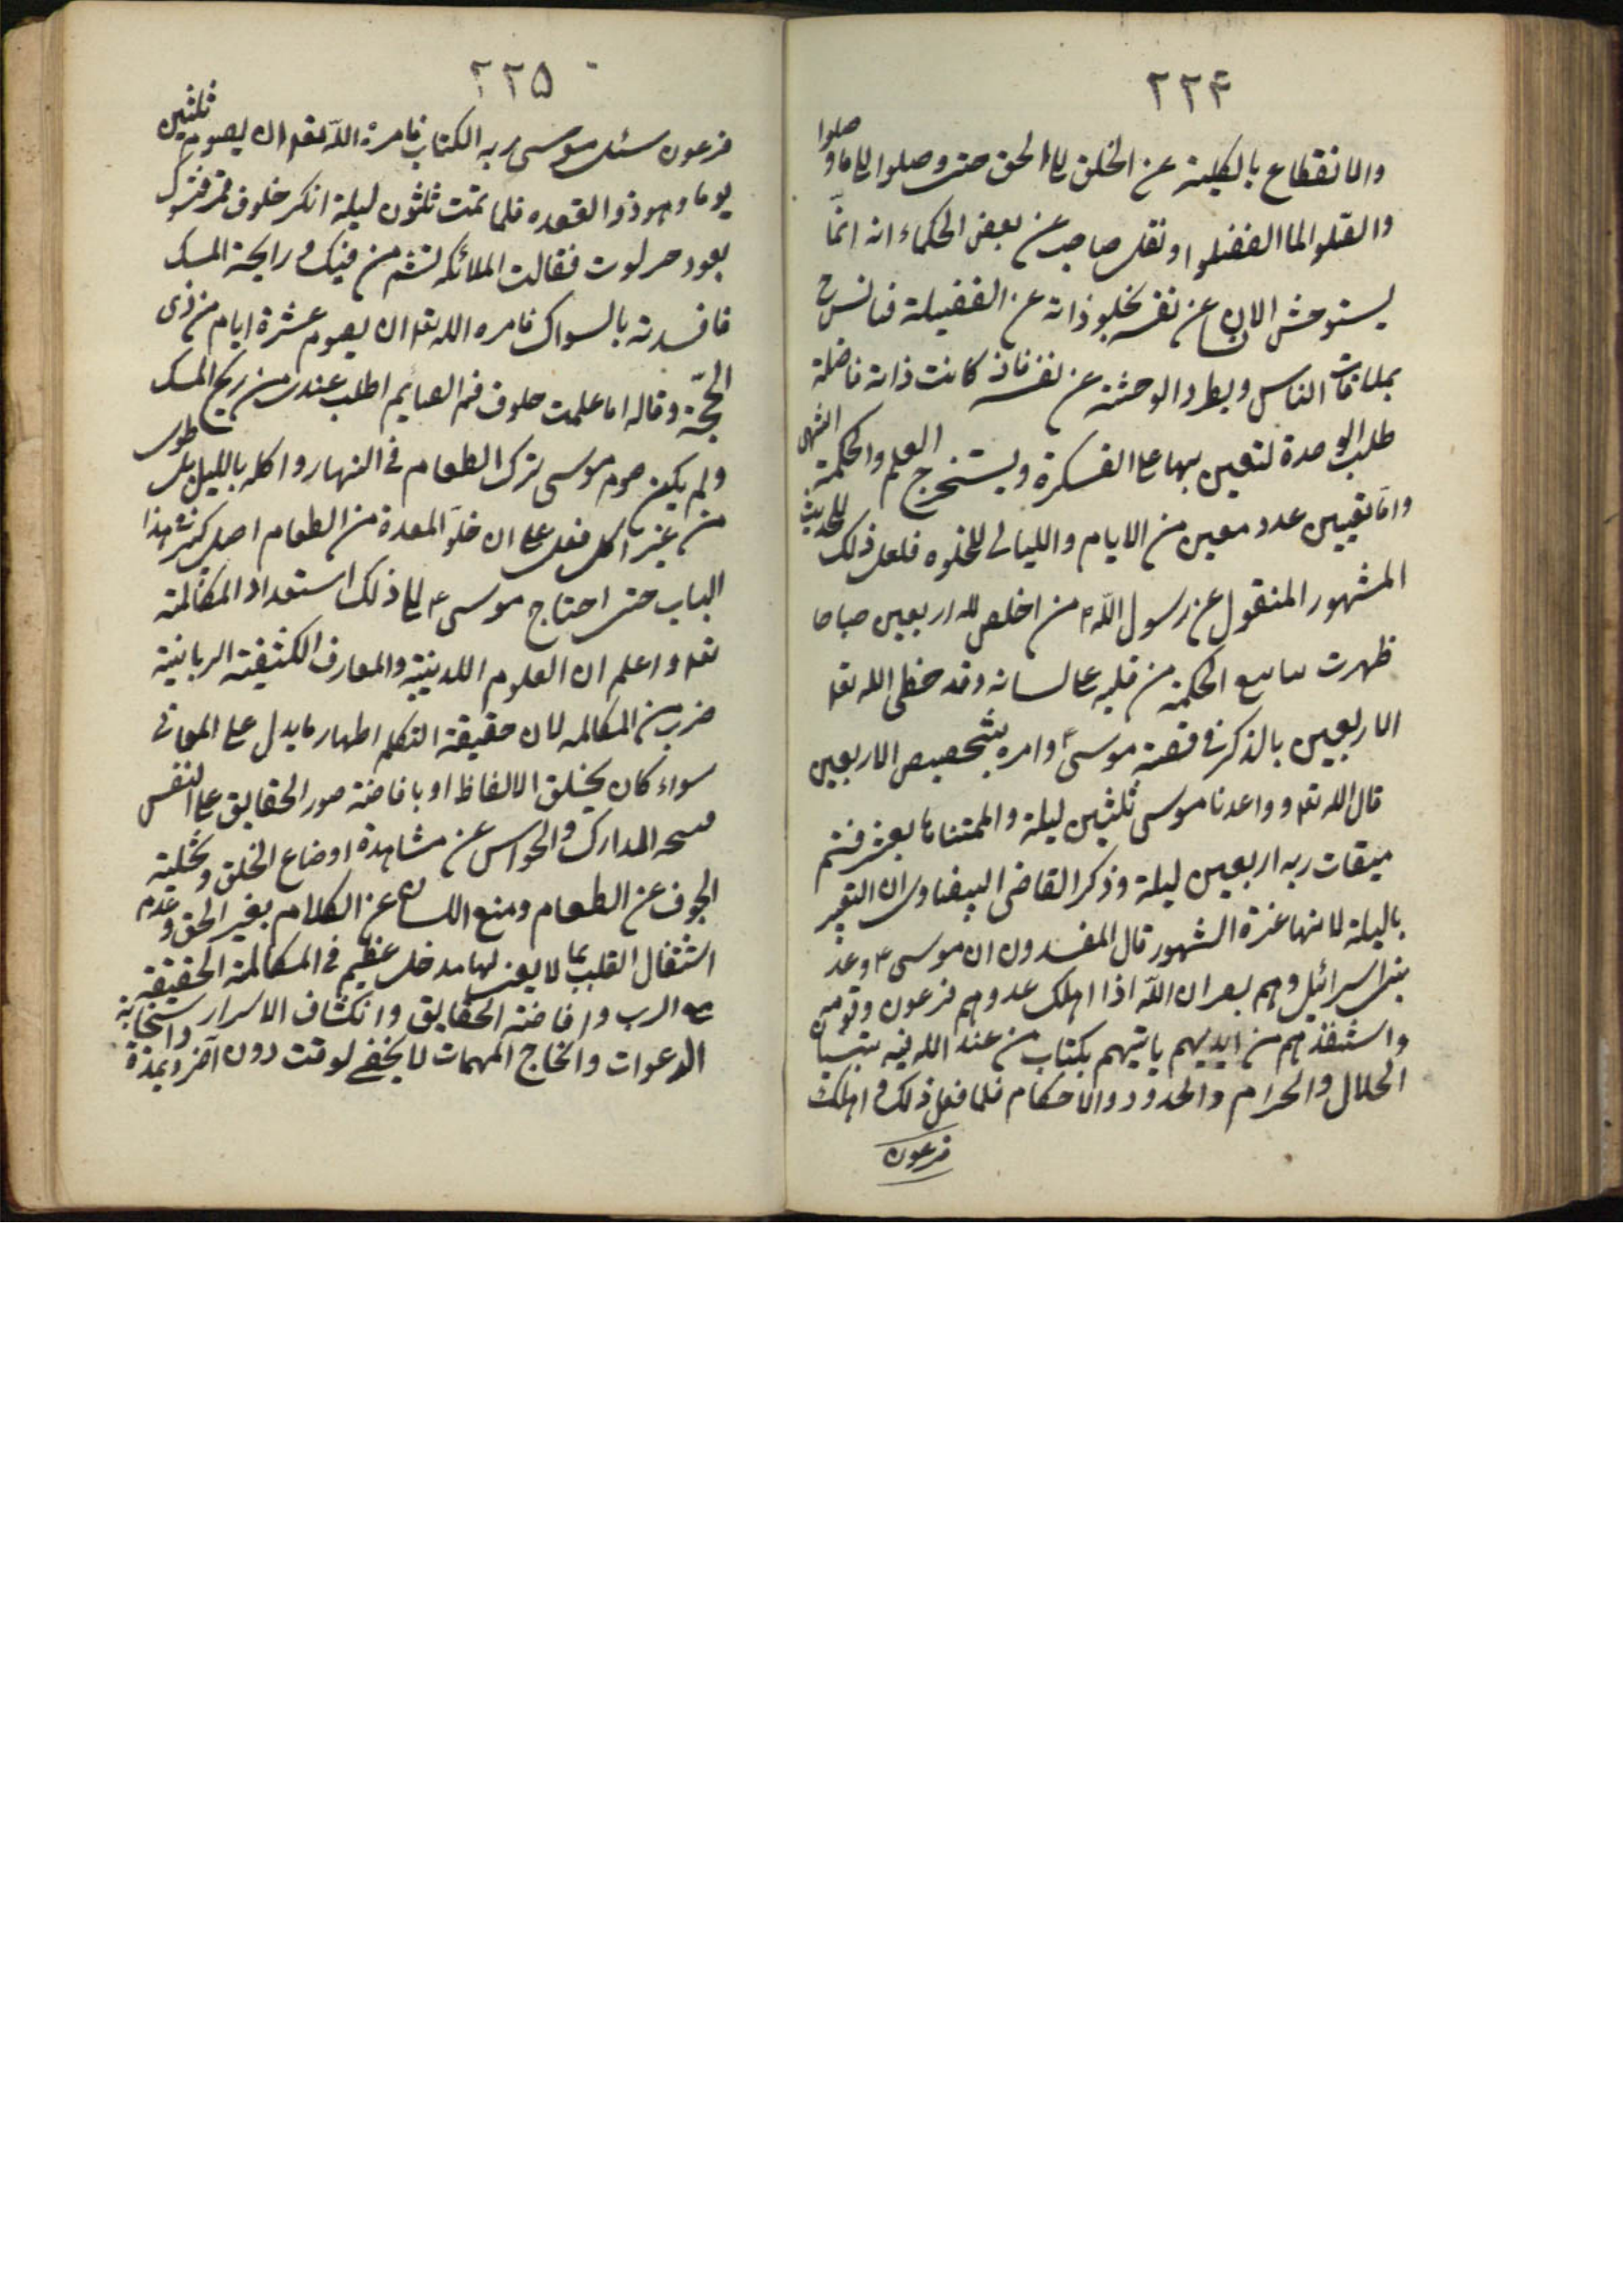 ٢٢٤
والانقطاع بالكلية عن الخلق الى الحق حتى وصلوا الى ما وصلوا
واتصلوا الى ما انفصلوا ونقل صاحب عن بعض الحكماء انه انّما
يستوحش الانسان عن نفسه لخلو ذاته عن الفضيلة فيأنس ح
بملاقات الناس ويطرد الوحشة عن نفسه فاذ كانت ذاته فاضلة
طلب الوحدة لتعين بها على الفكرة ويستخرج العلم والحكمة انتهى
وامّا تعيين عدد معين من الايام والليالى للخلوه فلعل ذلك للحديث
المشهور المنقول عن رسول اللّه ص من اخلص لله اربعين صباحا
ظهرت ينابيع الحكمة من قلبه على لسانه وقد خص الله تعا
الاربعين بالذكر فى قصة موسى ع وامره بتخصيص الاربعين
قال الله تعا وواعدنا موسى ثلثين ليلة واتممناها بعشر فتم
ميقات ربه اربعين ليلة وذكر القاضى البيضاوى ان التعبير
بالليلة لانها غرة الشهور قال المفسرون ان موسى ع وعد
بنى اسرائيل وهم بمصر ان اللّه اذا اهلك عدوهم فرعون وقومه
واستنقذهم من ايديهم ياتيهم بكتاب من عند الله فيه تبيان
الحلال والحرام والحدود والاحكام فلما فعل ذلك واهلك
فرعون
٢٢٥
فرعون سئل موسى ربه الكتاب فامره اللّه تعا ان يصوم ثلثين
يوما وهو ذو القعده فلما تمت ثلثون ليلة انكر خلوف فمه فتسوك
بعود خرنوب فقالت الملائكه نشم من فيك رايحة المسك
فافسدته بالسواك فامره الله تعا ان يصوم عشرة ايام من ذى
الحجّة وقال له اما علمت خلوف فم الصايم اطيب عندى من ريح المسك
ولم يكن صوم موسى ترك الطعام فى النهار واكله بالليل بل طوى
من غير اكل فعل على ان خلوّ المعدة من الطعام اصل كبير فى هذا
الباب حتى احتاج موسى ع الى ذلك استعداد المكالمة
تعا واعلم ان العلوم اللدنيّة والمعارف الكشفية الربانية
ضرب من المكالمه لان حقيقة التكلم اظهار ما يدل على المعانى
سواء كان بخلق الالفاظ او بافاضة صور الحقايق على النفس
المدارك والحواس عن مشاهدة اوضاع الخلق وتخلية
الجوف عن الطعام ومنع اللسان عن الكلام بغير الحق وعدم
اشتغال القلب بما لا يعنى لها مدخل عظيم فى المكالمة الحقيقية
مع الرب وافاضة الحقايق وانكشاف الاسرار واستجابة
الدعوات وانجاح المهمات لا يختص لوقت دون آخر وبمدة